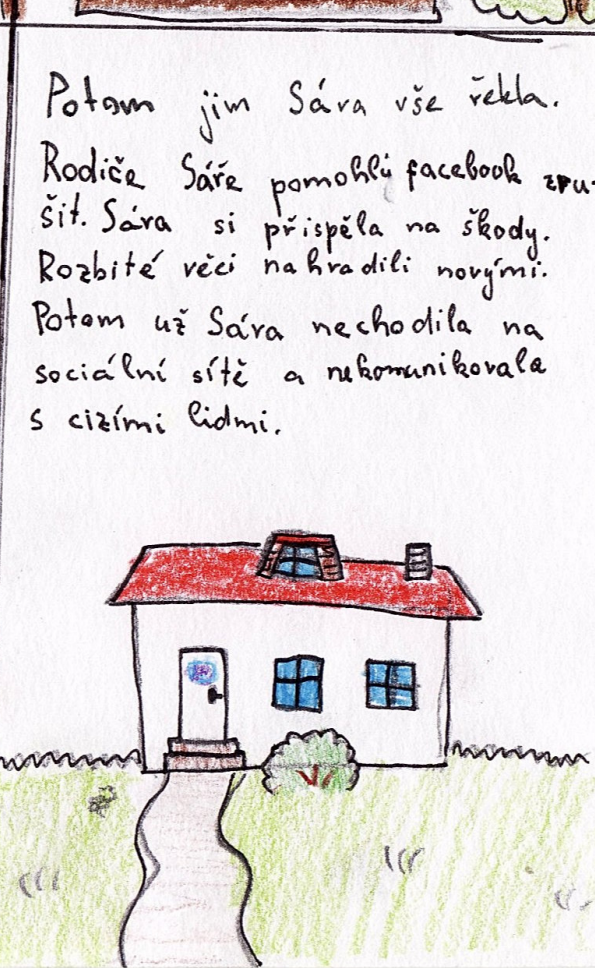 Potom jim Sára vše řekla.
Rodiče Sáře pomohli facebook zru-
šit. Sára si přispěla na škody.
Rozbité věci nahradili novými.
Potom už Sára nechodila na
sociální sítě a nekomunikovala
s cizími lidmi.